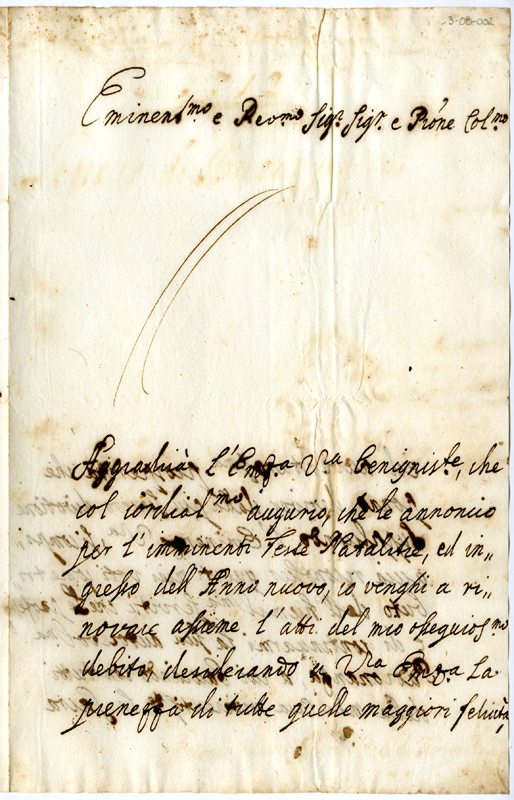 3-08-002
Eminenmo e Revmo Sigr. Sigr. e Prône Colmo
Aggradirà l'Emza Vra benigniste, che
col cordialmo augurio, che le annoncio
per l'imminenti Feste Natalitie, ed in„
gresso dell'Anno nuovo, io venghi a ri„
novare assieme l'atti del mio ossequiosmo
debito, desiderando a Vra Emza la
pienezza di tutte quelle maggiori felicità,